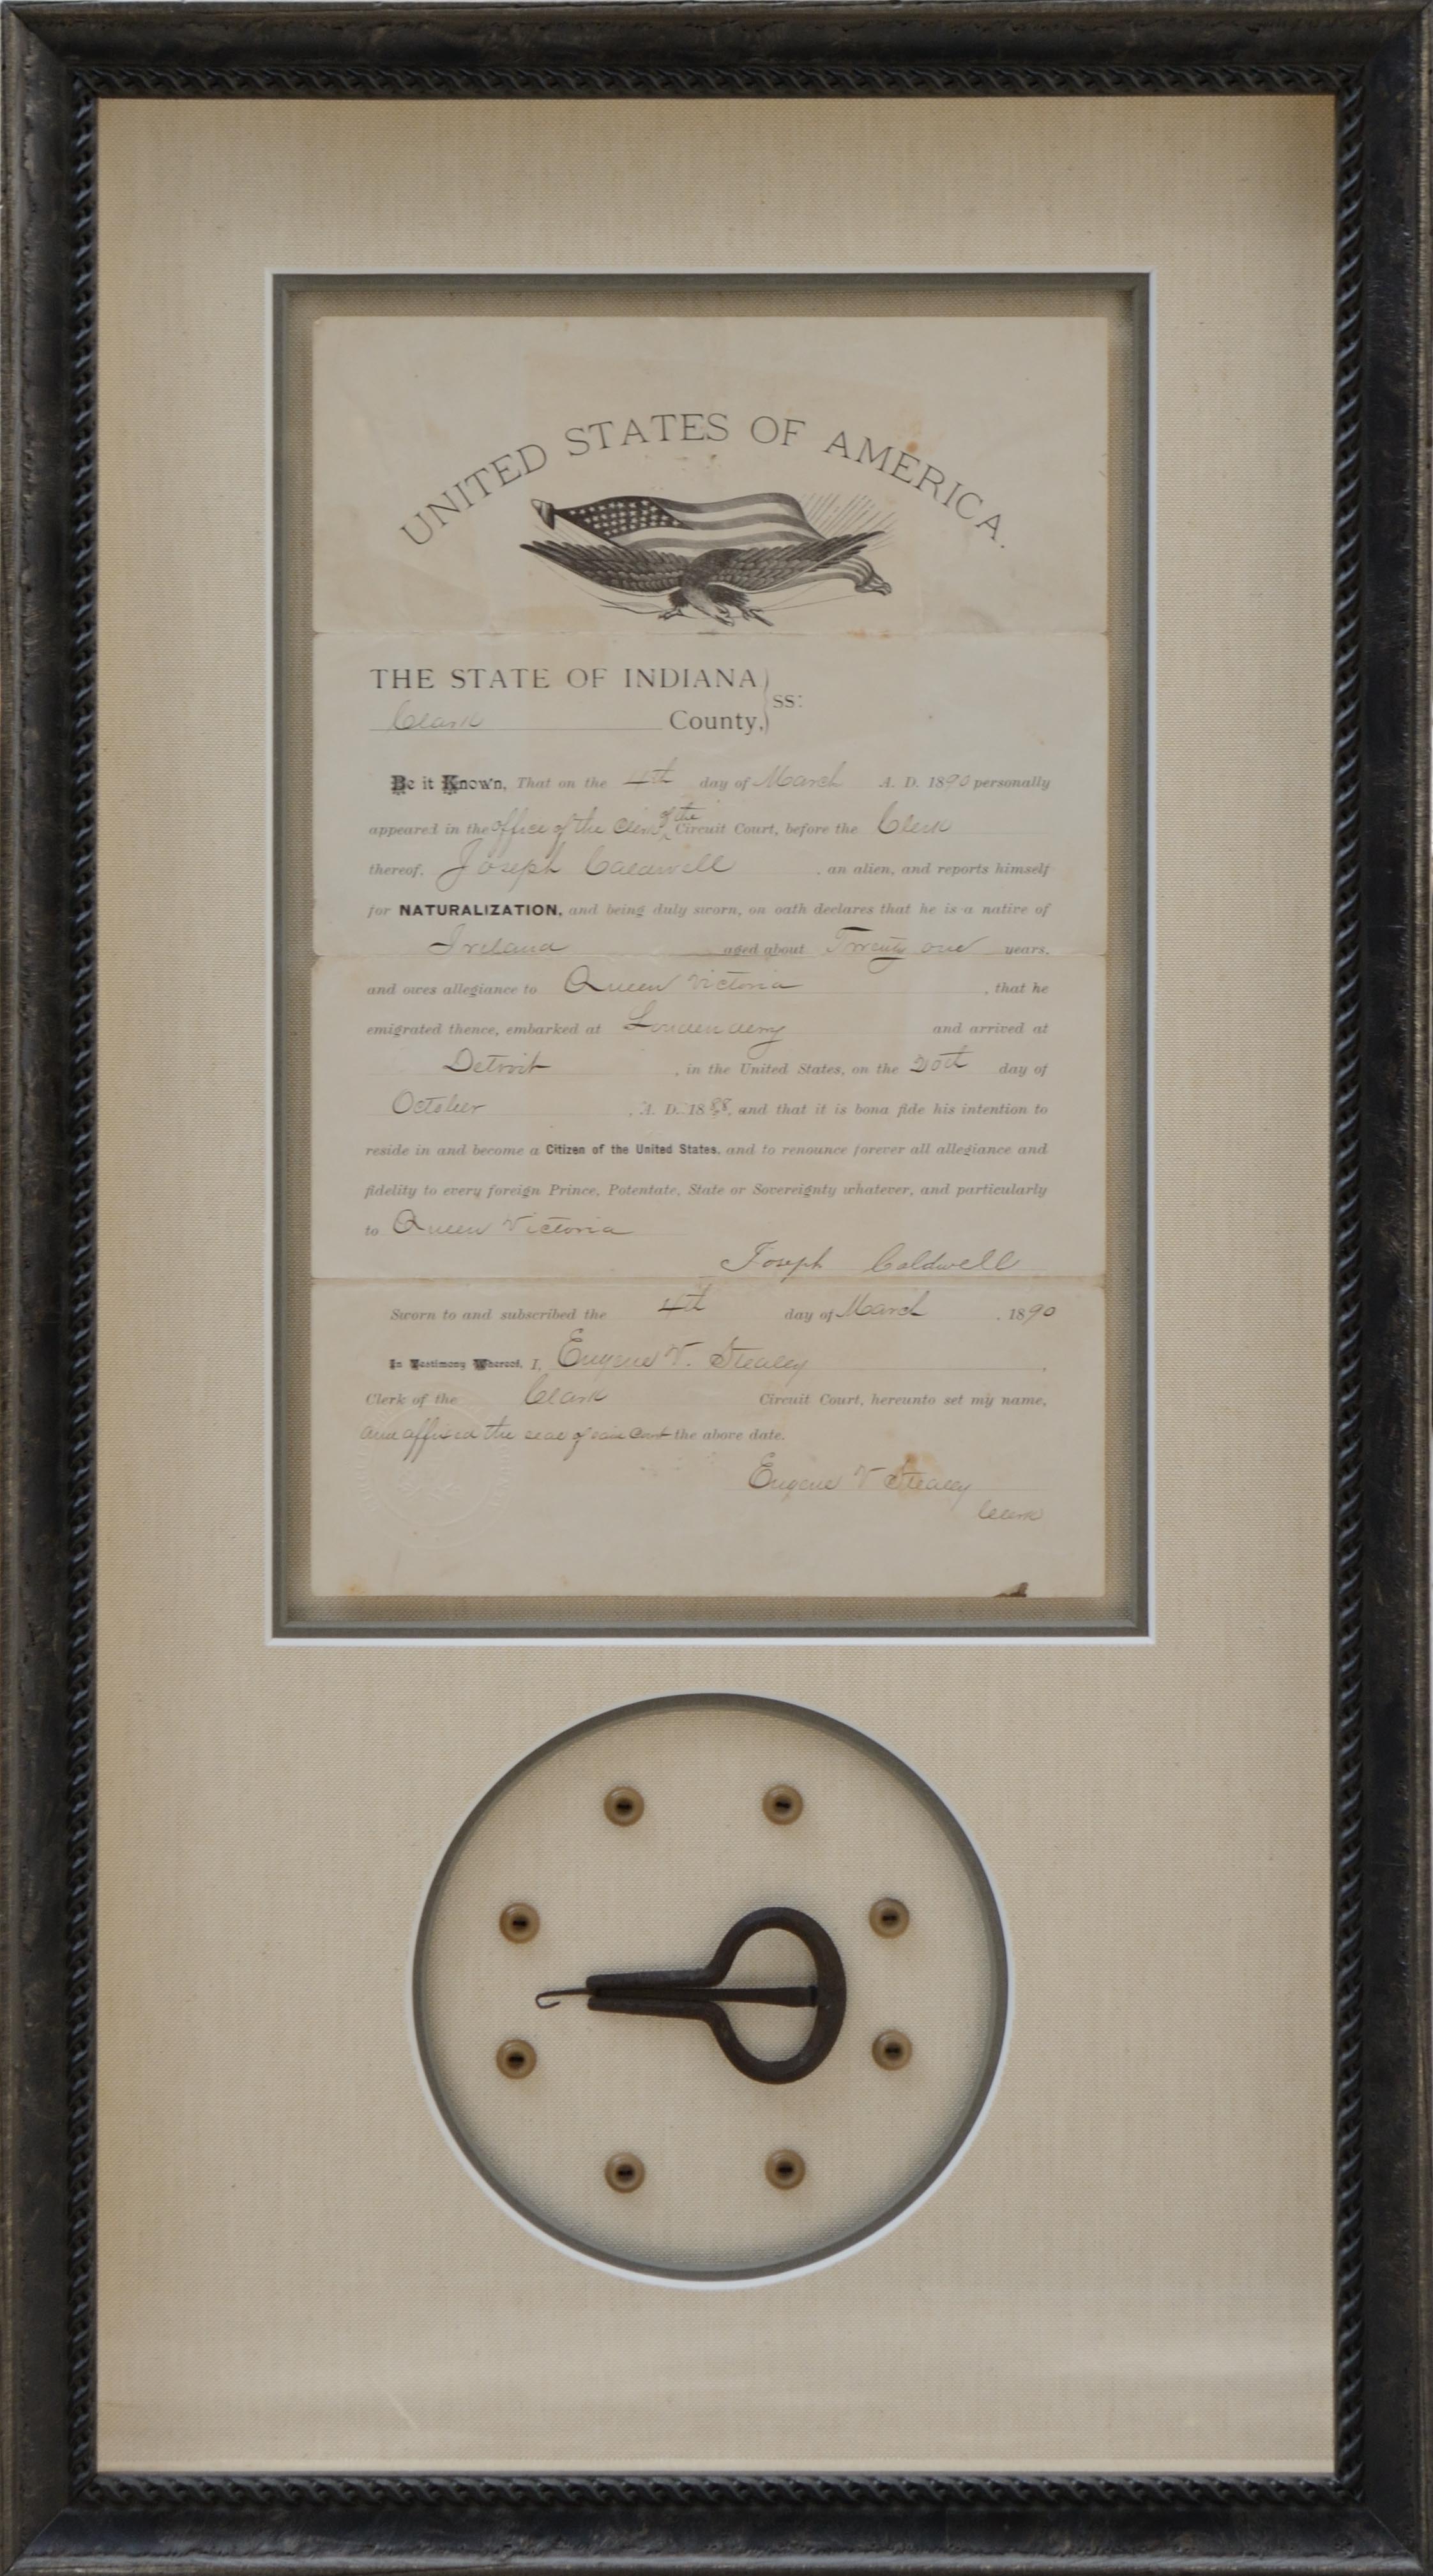 UNITED STATES OF AMERICA.
THE STATE OF INDIANA } ss:
Clark County,
Be it Known, That on the 4th day of March A. D. 1890 personally
appeared in the office of the Clerk of the Circuit Court, before the Clerk
thereof, Joseph Caldwell, an alien, and reports himself
for NATURALIZATION, and being duly sworn, on oath declares that he is a native of
Ireland aged about Twenty one years,
and owes allegiance to Queen Victoria, that he
emigrated thence, embarked at Londenderry and arrived at
Detroit, in the United States, on the 20th day of
October, A. D. 1888, and that it is bona fide his intention to
reside in and become a Citizen of the United States, and to renounce forever all allegiance and
fidelity to every foreign Prince, Potentate, State or Sovereignty whatever, and particularly
to Queen Victoria
Joseph Caldwell
Sworn to and subscribed the 4th day of March, 1890
In Testimony Whereof, I, Eugene V. Stealey,
Clerk of the Clark Circuit Court, hereunto set my name,
and affixed the seal of said Court the above date.
Eugene V Stealey
Clerk